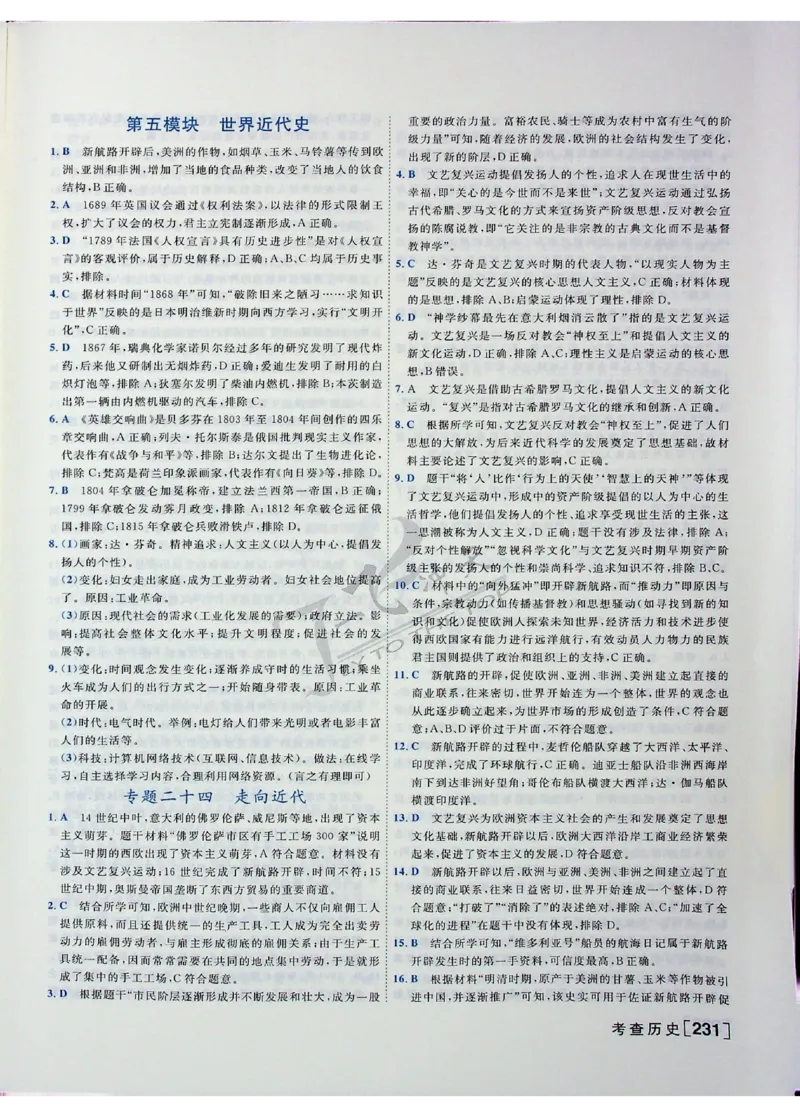 第五模块 世界近代史
1. B 新航路开辟后,美洲的作物,如烟草、玉米、马铃薯等传到欧
洲、亚洲和非洲,增加了当地的食品种类,改变了当地人的饮食
结构,B正确。
2. A 1689年英国议会通过《权利法案》,以法律的形式限制王
权,扩大了议会的权力,君主立宪制逐渐形成,A正确。
3. D “1789年法国《人权宣言》具有历史进步性”是对《人权宣
言》的客观评价,属于历史解释,D正确;A、B、C均属于历史事
实,排除。
4. C 据材料时间“1868年”可知,“破除旧来之陋习……求知识
于世界”反映的是日本明治维新时期向西方学习,实行“文明开
化”,C正确。
5. D 1867年,瑞典化学家诺贝尔经过多年的研究发明了现代炸
药,后来他又研制出无烟炸药,D正确;爱迪生发明了耐用的白
炽灯泡等,排除A;狄塞尔发明了柴油内燃机,排除B;本茨制造
出第一辆由内燃机驱动的汽车,排除C。
6. A 《英雄交响曲》是贝多芬在1803年至1804年间创作的四乐
章交响曲,A正确;列夫·托尔斯泰是俄国批判现实主义作家,
代表作有《战争与和平》等,排除B;达尔文提出了生物进化论,
排除C;梵高是荷兰印象派画家,代表作有《向日葵》等,排除D。
7. B 1804年拿破仑加冕称帝,建立法兰西第一帝国,B正确;
1799年拿破仑发动雾月政变,排除A;1812年拿破仑远征俄
国,排除C;1815年拿破仑兵败滑铁卢,排除D。
8. (1)画家:达·芬奇。精神追求:人文主义(以人为中心,提倡发
扬人的个性)。
(2)变化:妇女走出家庭,成为工业劳动者。妇女社会地位提高
了。原因:工业革命。
(3)原因:现代社会的需求(工业化发展的需要);政府立法。影
响:提高社会整体文化水平;提升文明程度;促进社会的发
展等。
9. (1)变化:时间观念发生变化;逐渐养成守时的生活习惯;乘坐
火车成为人们的出行方式之一;开始随身带表。原因:工业革
命的开展。
(2)时代:电气时代。举例:电灯给人们带来光明或者电影丰富
人们的生活等。
(3)科技:计算机网络技术(互联网、信息技术)。做法:在线学
习,自主选择学习内容,合理利用网络资源。(言之有理即可)
专题二十四 走向近代
1. A 14世纪中叶,意大利的佛罗伦萨、威尼斯等地,出现了资本
主义萌芽。题干材料“佛罗伦萨市区有手工工场300家”说明
这一时期的西欧出现了资本主义萌芽,A符合题意。材料没有
涉及文艺复兴运动;16世纪完成了新航路开辟,时间不符;15
世纪中期,奥斯曼帝国垄断了东西方贸易的重要商道。
2. C 结合所学可知,欧洲中世纪晚期,一些商人不仅向雇佣工人
提供原料,而且还提供统一的生产工具,工人成为完全出卖劳
动力的雇佣劳动者,与雇主形成彻底的雇佣关系;由于生产工
具统一配备,因而常常需要在共同的地点集中劳动,于是就形
成了集中的手工工场,C符合题意。
3. D 根据题干“市民阶层逐渐形成并不断发展和壮大,成为一股
重要的政治力量。富裕农民、骑士等成为农村中富有生气的阶
级力量”可知,随着经济的发展,欧洲的社会结构发生了变化,
出现了新的阶层,D正确。
4. B 文艺复兴运动提倡发扬人的个性,追求人在现世生活中的
幸福,即“关心的是今世而不是来世”;文艺复兴运动通过弘扬
古代希腊、罗马文化的方式来宣扬资产阶级思想,反对教会宣
扬的陈腐说教,即“它关注的是非宗教的古典文化而不是基督
教神学”。
5. C 达·芬奇是文艺复兴时期的代表人物,“以现实人物为主
题”反映的是文艺复兴的核心思想人文主义,C正确;材料体现
的是思想,排除A、B;启蒙运动体现了理性,排除D。
6. D “神学纱幕最先在意大利烟消云散了”指的是文艺复兴运
动。文艺复兴是一场反对教会“神权至上”和提倡人文主义的
新文化运动,D正确,排除A、C;理性主义是启蒙运动的核心思
想,B错误。
7. A 文艺复兴是借助古希腊罗马文化,提倡人文主义的新文化
运动。“复兴”是指对古希腊罗马文化的继承和创新,A正确。
8. C 根据所学可知,文艺复兴反对教会“神权至上”,促进了人们
思想的大解放,为后来近代科学的发展奠定了思想基础,故材
料主要论述了文艺复兴的影响,C正确。
9. D 题干“将‘人’比作‘行为上的天使’‘智慧上的天神’”等体现
了文艺复兴运动中,形成中的资产阶级提倡的以人为中心的生
活哲学,他们提倡发扬人的个性,追求享受现世生活的主张,这
一思潮被称为人文主义,D正确;题干没有涉及法律,排除A;
“反对个性解放”“忽视科学文化”与文艺复兴时期早期资产阶
级主张的发扬人的个性和崇尚科学、追求知识不符,排除B、C。
10. C 材料中的“向外猛冲”即开辟新航路,而“推动力”即原因与
条件,宗教动力(如传播基督教)和思想骚动(如寻找到新的知
识和文化)促使欧洲人探索未知世界,经济活力和技术进步使
得西欧国家有能力进行远洋航行,有效动员人力物力的民族
君主国则提供了政治和组织上的支持,C正确。
11. C 新航路的开辟,促使欧洲、亚洲、非洲、美洲建立起直接的
商业联系,往来密切,世界开始连为一个整体,世界的观念也
从此逐步确立起来,为世界市场的形成创造了条件,C符合题
意;A、B、D评价过于片面,不符合题意。
12. C 新航路开辟的过程中,麦哲伦船队穿越了大西洋、太平洋、
印度洋,完成了环球航行,C正确。迪亚士船队沿非洲西海岸
南下到达非洲好望角;哥伦布船队横渡大西洋;达·伽马船队
横渡印度洋。
13. D 文艺复兴为欧洲资本主义社会的产生和发展奠定了思想
文化基础,新航路开辟以后,欧洲大西洋沿岸工商业经济繁荣
起来,促进了资本主义的发展,D符合题意。
14. D 新航路开辟以后,欧洲与亚洲、美洲、非洲之间建立起了直
接的商业联系,往来日益密切,世界开始连成一个整体,D符
合题意;“打破了”“消除了”的表述绝对,排除A、C;“加速了全
球化的进程”在题干中没有体现,排除B。
15. B 结合所学可知,“维多利亚号”船员的航海日记属于新航路
开辟发生时的第一手资料,可信度最高,B正确。
16. B 根据材料“明清时期,原产于美洲的甘薯、玉米等作物被引
进中国,并逐渐推广”可知,该史实可用于佐证新航路开辟促
考查历史[231]